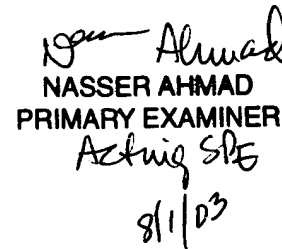 Nasser Ahmad
NASSER AHMAD
PRIMARY EXAMINER
Acting SPE
8/1/03